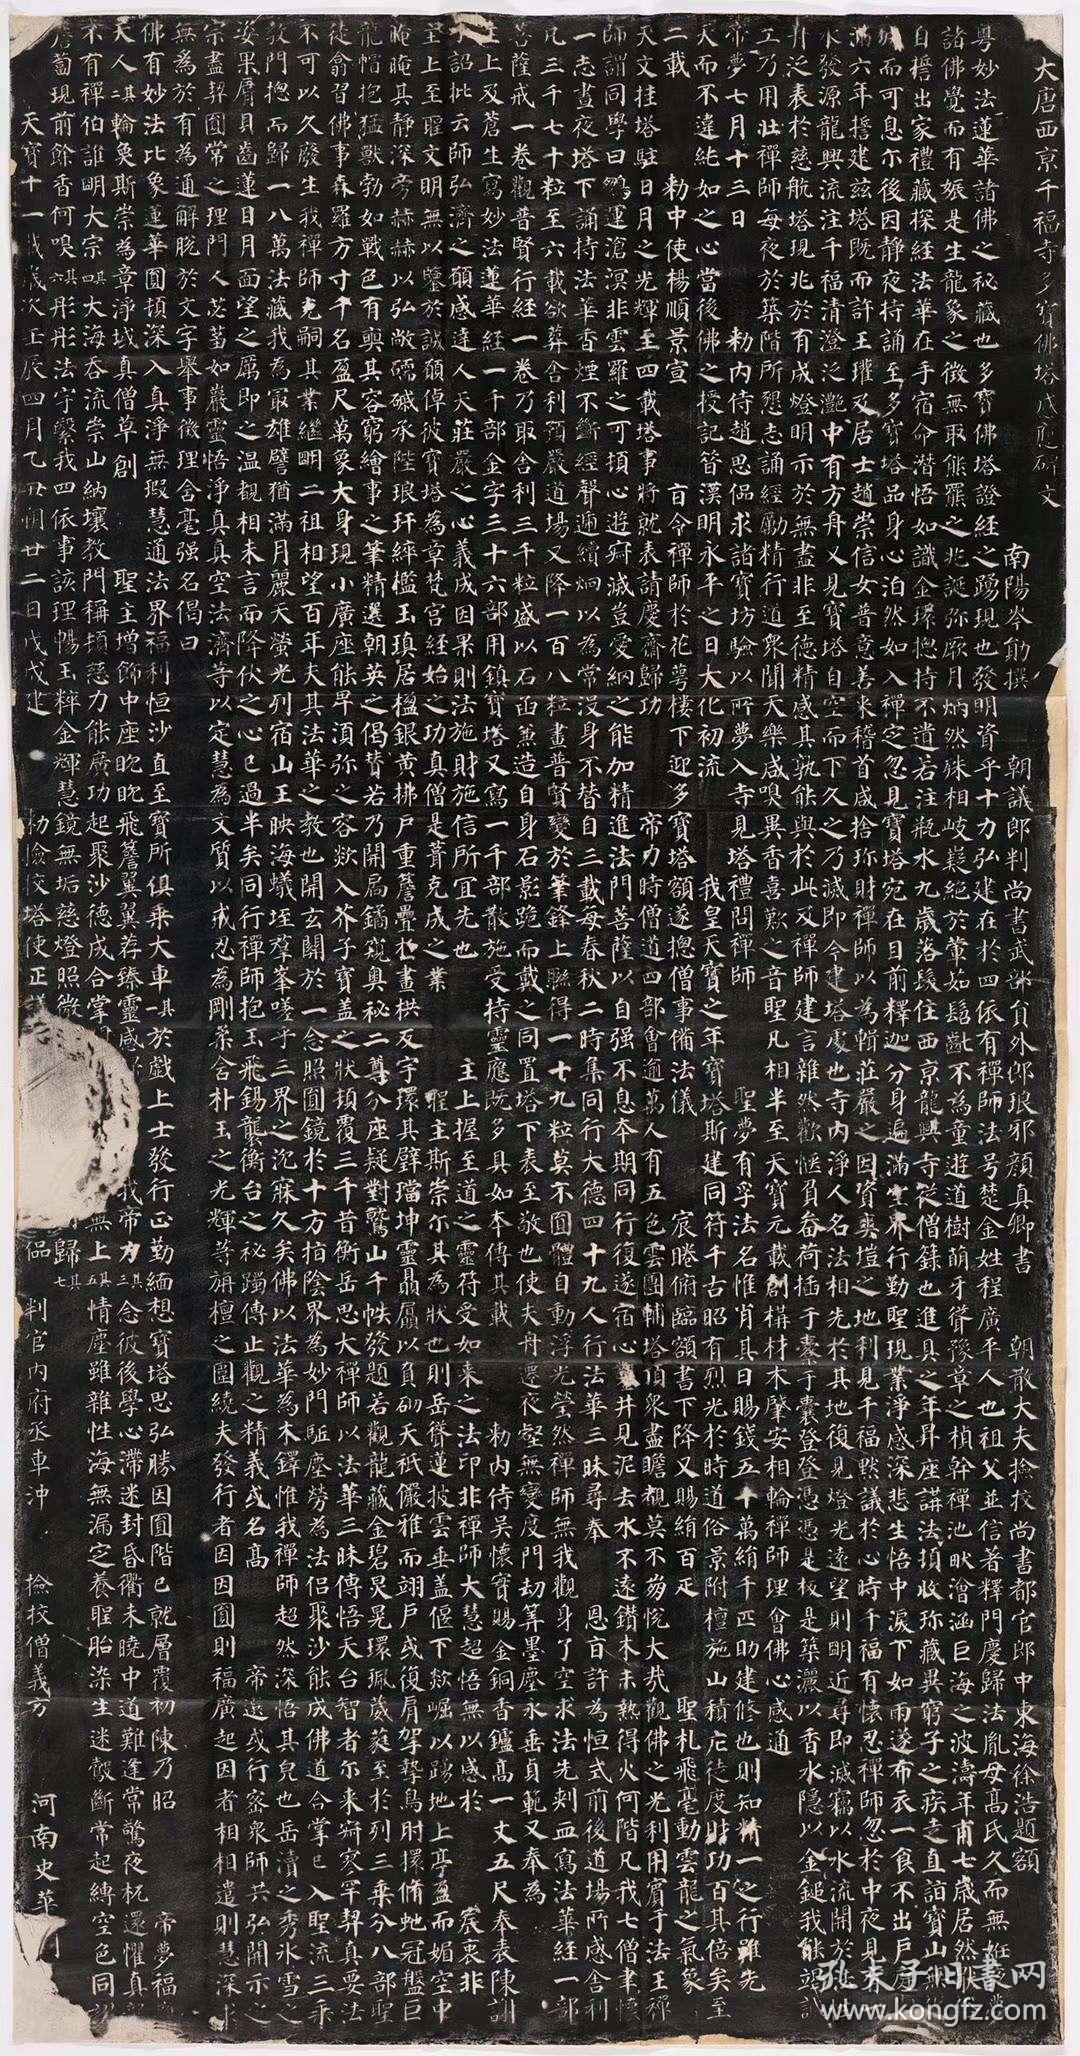 大唐西京千福寺多寶佛塔感應碑文
南陽岑勛撰 朝議郎判尚書武部員外郎琅邪顏真卿書 朝散大夫撿挍尚書都官郎中東海徐浩題額
粵妙法蓮華諸佛之秘藏也多寶佛塔證經之踴現也發明資乎十力弘建在於四依有禪師法号楚金姓程廣平人也祖父並信著釋門慶歸法胤母高氏久而無姙夜夢
諸佛覺而有娠是生龍象之徵無取熊羆之兆誕弥厥月炳然殊相岐嶷絕於葷茹髫齔不為童遊道樹萌牙聳豫章之楨幹禪池畎澮涵巨海之波濤年甫七歲居然猒
自誓出家禮藏探經法華在手宿命潛悟如識金環揔持不遺若注瓶水九歲落髮住西京龍興寺從僧籙也進具之年昇座講法頓收珎藏異窮子之疾走直詣寶山無
城而可息尒後因靜夜持誦至多寶塔品身心泊然如入禪定忽見寶塔宛在目前釋迦分身遍滿空界行勤聖現業淨感深悲生悟中淚下如雨遂布衣一食不出戶庭
滿六年誓建茲塔既而許王瓘及居士趙崇信女普意善來稽首咸捨珎財禪師以為輯莊嚴之因資爽塏之地利見千福默議於心時千福有懷忍禪師忽於中夜見有
水發源龍興流注千福清澄泛灧中有方舟又見寶塔自空而下久之乃滅即今建塔處也寺內淨人名法相先於其地復見燈光遠望則明近尋即滅竊以水流開於
舟泛表於慈航塔現兆於有成燈明示於無盡非至德精感其孰能與於此及禪師建言雜然歡愜負畚荷插于橐于囊登登憑憑是板是築灑以香水隱以金鎚我能竭誠
工乃用壯禪師每夜於築階所懇志誦經勵精行道眾聞天樂咸嗅異香喜歎之音聖凡相半至天寶元載創構材木肇安相輪禪師理會佛心感通
帝夢七月十三日 勑內侍趙思侃求諸寶坊驗以所夢入寺見塔禮問禪師 聖夢有孚法名惟肖其日賜錢五十萬絹千匹助建修也則知精一之行雖先
天而不違純如之心當後佛之授記昔漢明永平之日大化初流 我皇天寶之年寶塔斯建同符千古昭有烈光於時道俗景附檀施山積庀徒度財功百其倍矣至
二載 勑中使楊順景宣 旨令禪師於花萼樓下迎多寶塔額遂揔僧事備法儀 宸睠俯臨額書下降又賜絹百疋 聖札飛毫動雲龍之氣象
天文挂塔駐日月之光輝至四載塔事將就表請慶齋歸功 帝力時僧道四部會逾萬人有五色雲團輔塔頂眾盡瞻覩莫不崩悅大哉觀佛之光利用賓于法王禪
師謂同學曰鵬運滄溟非雲羅之可頓心遊寂滅豈愛網之能加精進法門菩薩以自强不息本期同行復遂宿心鑿井見泥去水不遠鑽木未熱得火何階凡我七僧聿懷
一志晝夜塔下誦持法華香煙不斷經聲遞續炯以為常沒身不替自三載每春秋二時集同行大德四十九人行法華三昧尋奉 恩旨許為恒式前後道場所感舍利
凡三千七十粒至六載欲葬舍利預嚴道場又降一百八粒畫普賢變於筆鋒上聯得一十九粒莫不圓體自動浮光瑩然禪師無我觀身了空求法先刺血寫法華經一部
菩薩戒一卷觀普賢行經一卷乃取舍利三千粒盛以石函兼造自身石影跪而戴之同置塔下表至敬也使夫舟遷夜壑無變度門劫筭墨塵永垂貞範又奉為
主上及蒼生寫妙法蓮華經一千部金字三十六部用鎮寶塔又寫一千部散施受持靈應既多具如本傳其載 勑內侍吳懷實賜金銅香鑪高一丈五尺奉表陳謝
手詔批云師弘濟之願感達人天莊嚴之心義成因果則法施財施信所宜先也 主上握至道之靈符受如來之法印非禪師大慧超悟無以感於 宸衷非
主上至聖文明無以鑒於誠願倬彼寶塔為章梵宮經始之功真僧是葺克成之業 聖主斯崇尒其為狀也則岳聳蓮披雲垂蓋偃下欻崛以踊地上亭盈而媚空中
晻晻其靜深旁赫赫以弘敞礝磩承陛琅玕綷檻玉瑱居楹銀黃拂戶重簷疊於畫栱反宇環其璧璫坤靈贔屭以負砌天祇儼雅而翊戶或復肩挐摯鳥肘擐脩虵冠盤巨
龍帽抱猛獸勃如戰色有奭其容窮繪事之筆精選朝英之偈贊若乃開扃鐍窺奧秘二尊分座疑對鷲山千帙發題若觀龍藏金碧炅晃環珮葳蕤至於列三乘分八部聖
徒翕習佛事森羅方寸千名盈尺萬象大身現小廣座能卑須弥之容欻入芥子寶蓋之狀頓覆三千昔衡岳思大禪師以法華三昧傳悟天台智者尒來寂寥罕契真要法
不可以久廢生我禪師克嗣其業繼明二祖相望百年夫其法華之教也開玄關於一念照圓鏡於十方指陰界為妙門駈塵勞為法侶聚沙能成佛道合掌已入聖流三乘
教門揔而歸一八萬法藏我為最雄譬猶滿月麗天螢光列宿山王映海蟻垤羣峯嗟乎三界之沉寐久矣佛以法華為木鐸惟我禪師超然深悟其皃也岳瀆之秀冰雪之
姿果脣貝齒蓮目月面望之厲即之溫覩相未言而降伏之心已過半矣同行禪師抱玉飛錫襲衡台之秘躅傳止觀之精義或名高 帝選或行密眾師共弘開示之
宗盡契圓常之理門人苾蒭如巖靈悟淨真真空法濟等以定慧為文質以戒忍為剛柔含朴玉之光輝等旃檀之圍繞夫發行者因因圓則福廣起因者相相遣則慧深求
無為於有為通解脫於文字舉事徵理含毫强名偈曰
佛有妙法比象蓮華圓頓深入真淨無瑕慧通法界福利恒沙直至寶所俱乘大車其一於戲上士發行正勤緬想寶塔思弘勝因圓階已就層覆初陳乃昭 帝夢福
大人其二輪奐斯崇為章淨域真僧草創 聖主增飾中座眈眈飛簷翼翼荐臻靈感 我帝力其三念彼後學心滯迷封昏衢未曉中道難逢常驚夜杌還懼真
不有禪伯誰明大宗其四大海吞流崇山納壤教門稱頓慈力能廣功起聚沙德成合掌 無上其五情塵雖雜性海無漏定養聖胎染生迷鷇斷常起縛空色同
薝蔔現前餘香何嗅其六彤彤法宇繄我四依事該理暢玉粹金輝慧鏡無垢慈燈照微 歸其七
天寶十一載歲次壬辰四月乙丑朔廿二日戊戌建 勑撿挍塔使正議 侃 判官內府丞車沖 撿挍僧義方 河南史華
孔夫子旧书网
www.kongfz.com